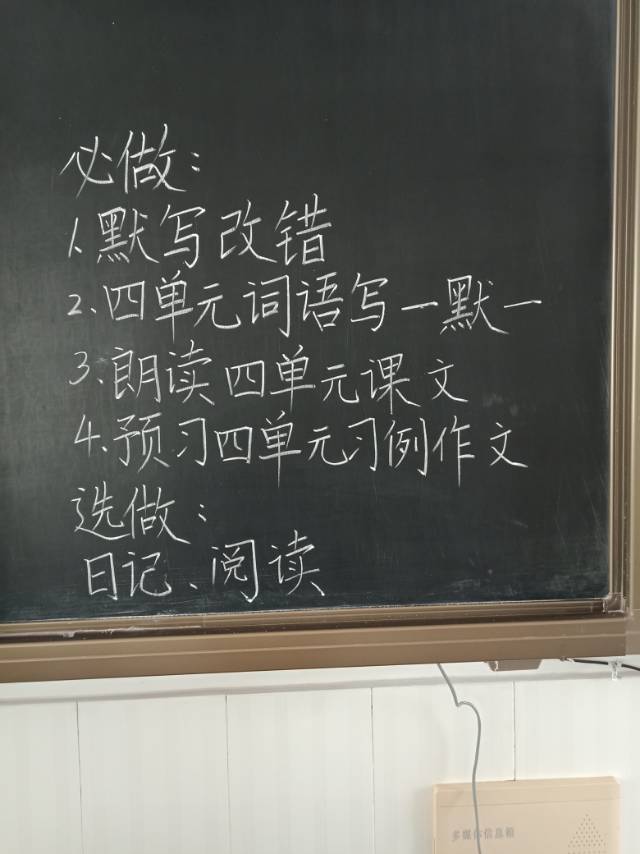 必做：
1.默写改错
2.四单元词语写一默一
3.朗读四单元课文
4.预习四单元习例作文
选做：
日记、阅读
多媒体信息箱